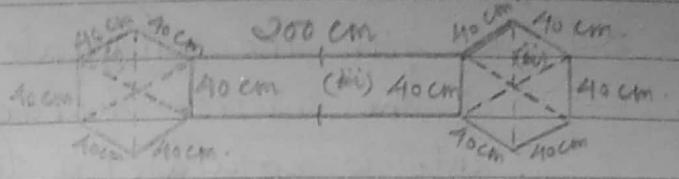 200 cm
40 cm 40 cm 40 cm 40 cm.
40 cm 40 cm (iii) 40 cm 40 cm.
40 cm 40 cm. 40 cm 40 cm